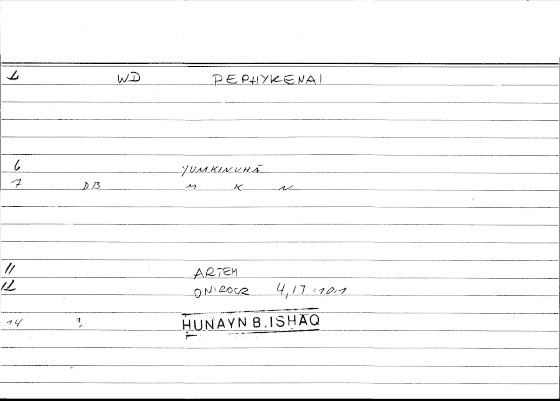 1 WD PEPHYKENAI
6 YUMKINUHĀ
7 DB M K N
11 ARTEM
12 ONIROCR 4,17:10.1
14 ? HUNAYN B. ISHAQ